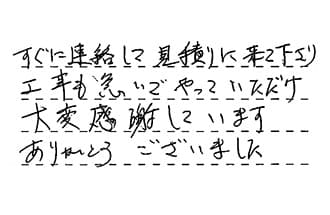 すぐに連絡して見積りに来て下さり
工事も急いでやっていただけ
大変感謝しています
ありがとうございました